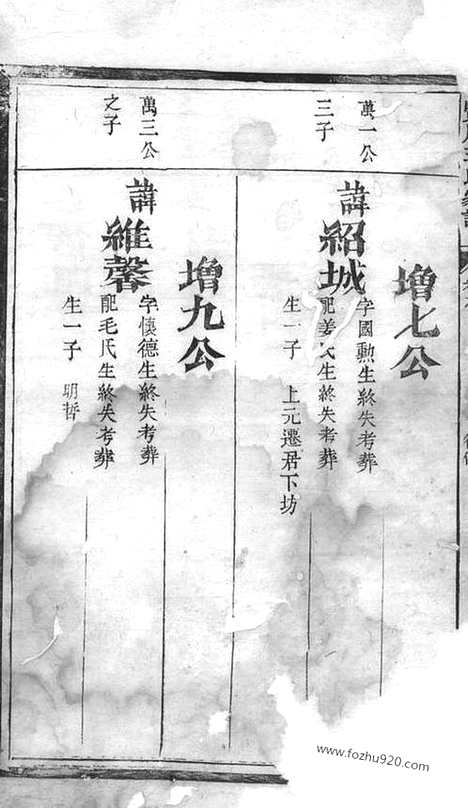 增七公
萬一公
三子
諱紹城
字國勲生終失考葬
配姜氏生終失考葬
生一子 上元遷居下坊
增九公
萬三公
之子
諱維馨
字懷德生終失考葬
配毛氏生終失考葬
生一子 明哲
www.fozhu920.com